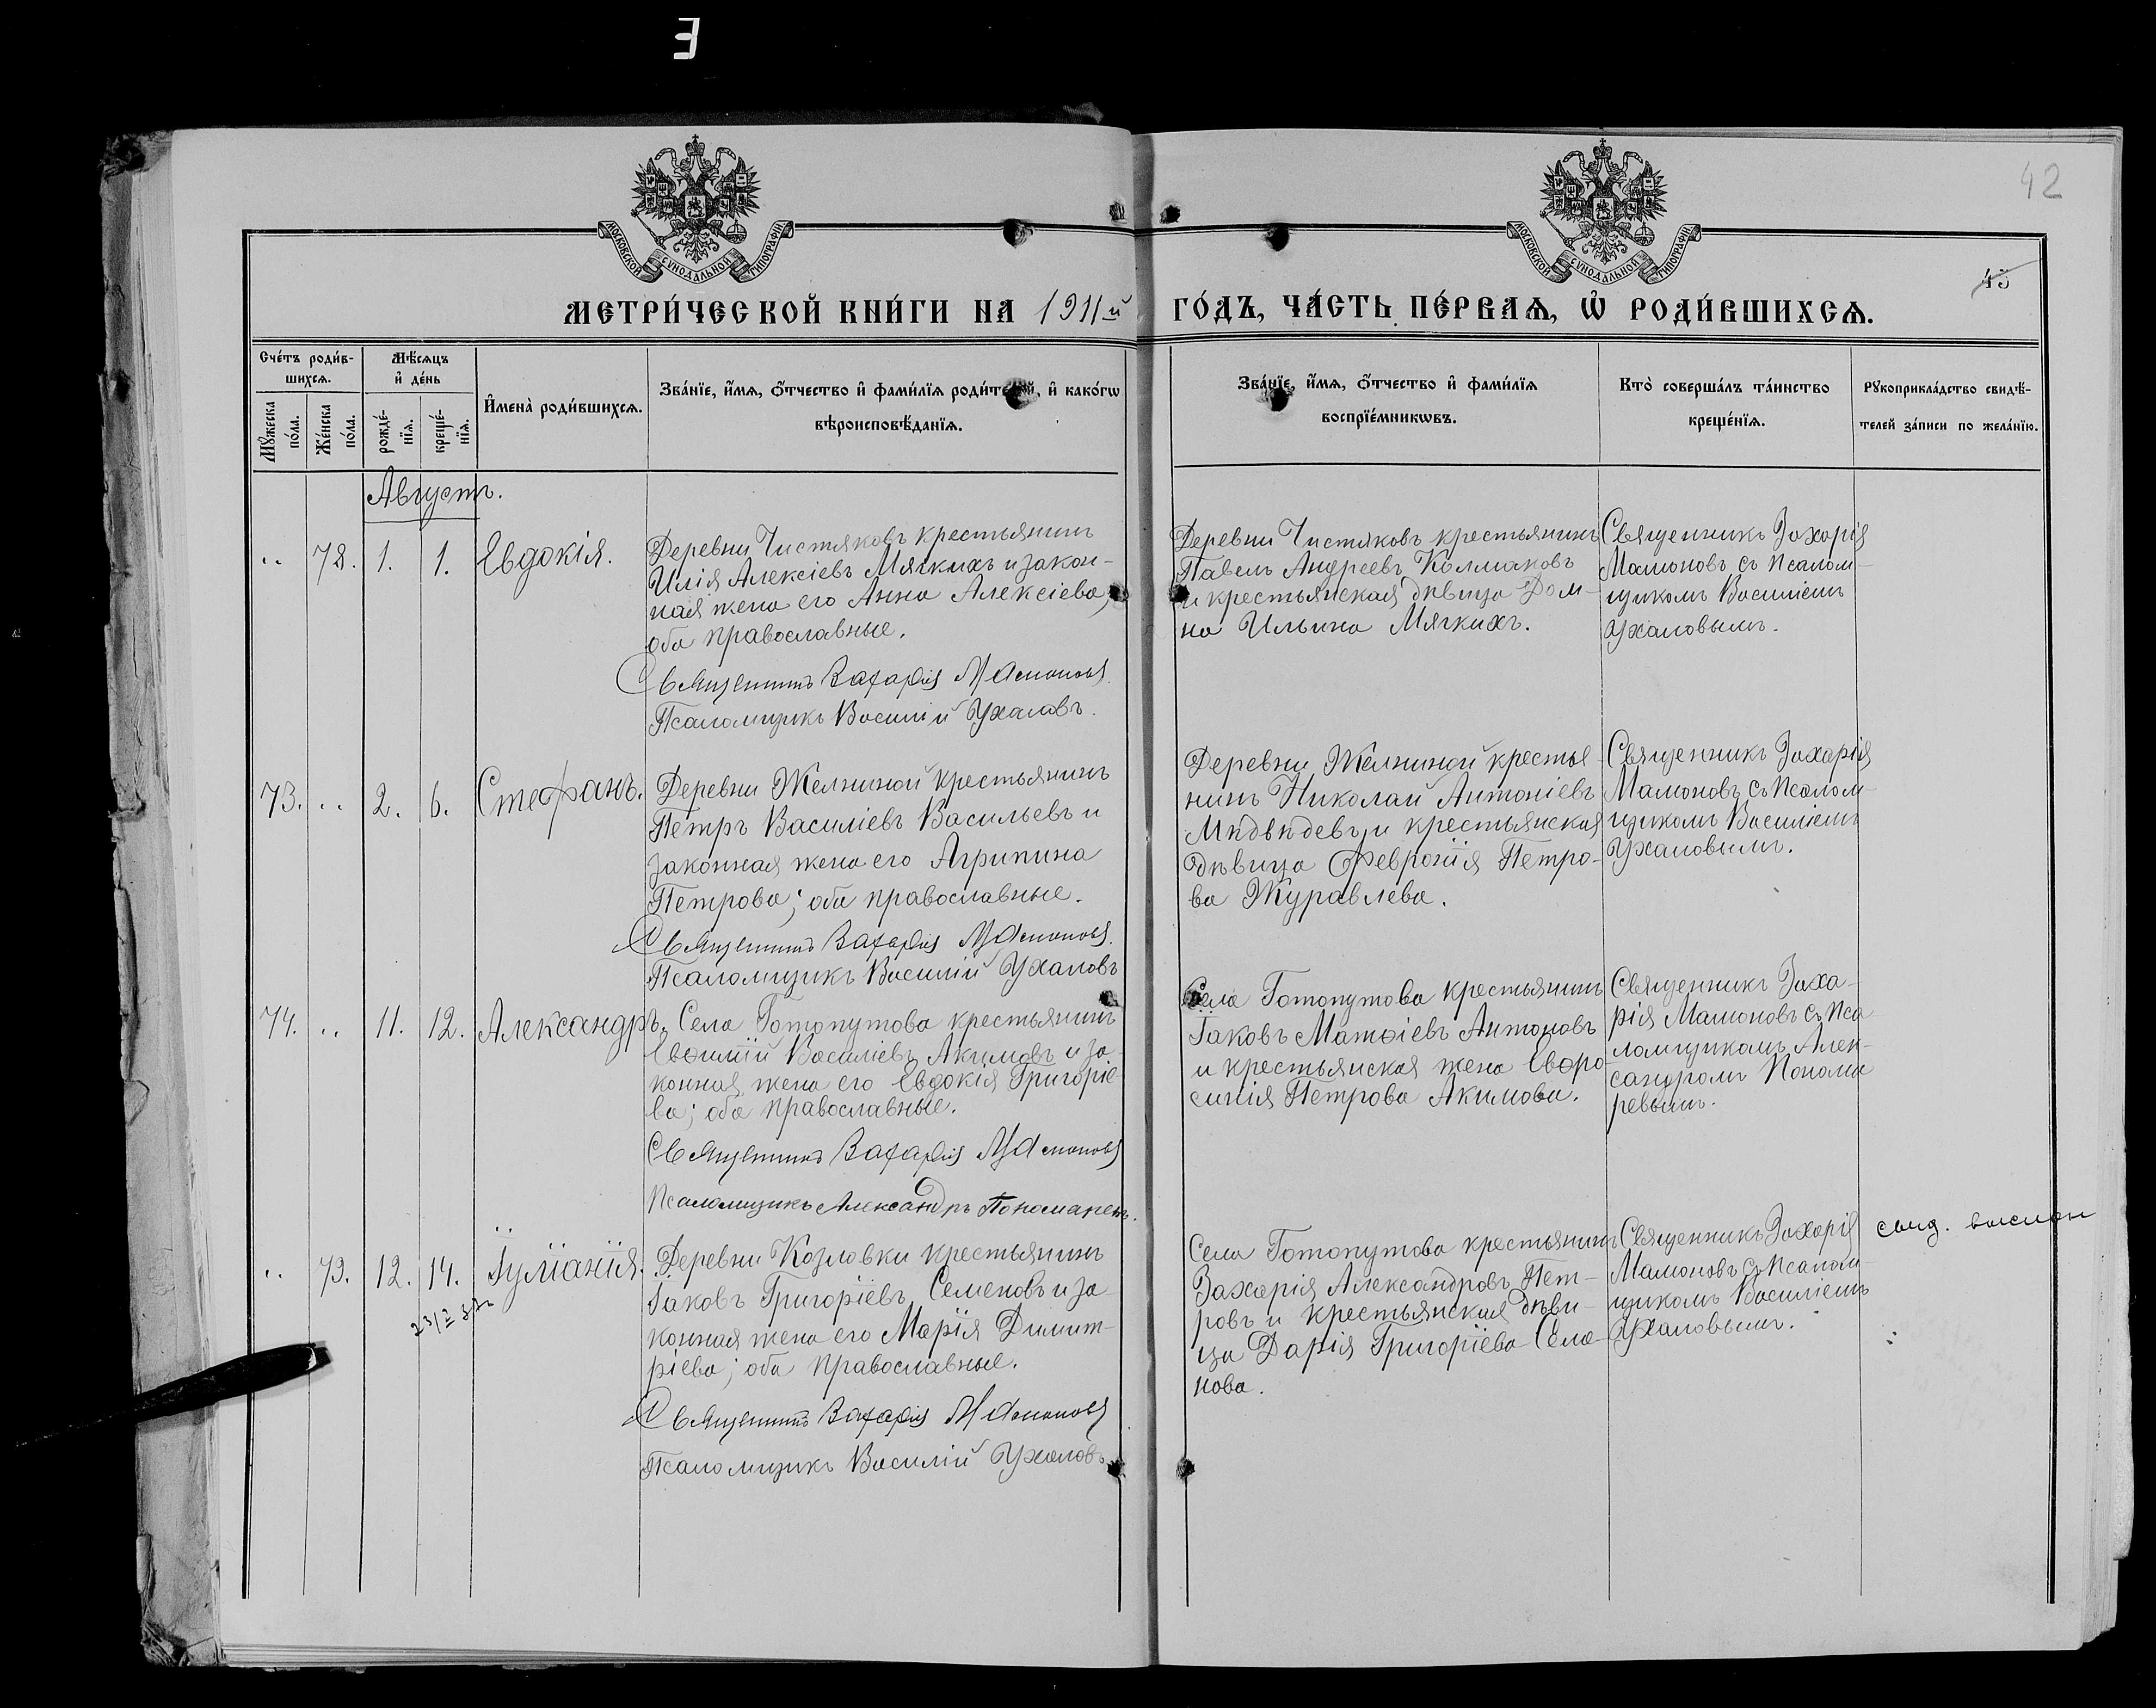 42
МОСКОВСКОЙ СѴНОДАЛЬНОЙ ТИПОГРАФІИ
МОСКОВСКОЙ СѴНОДАЛЬНОЙ ТИПОГРАФІИ
45
МЕТРИ́ЧЕСКОЙ КНИ́ГИ НА 1911й ГО́ДЪ, ЧА́СТЬ ПЕ́РВАѦ, Ѡ҆ РОДИ́ВШИХСѦ.
Сче́тъ роди́в-
шихсѧ.
Мꙋжеска
по́ла.
Же́нска
по́ла.
Мѣ́сѧцъ
и҆ де́нь
рожде́-
нїѧ.
креще́-
нїѧ.
И҆мена̀ роди́вшихсѧ.
Зва́нїе, и҆́мѧ, ѻ҆́тчество и҆ фами́лїѧ роди́телей, и҆ како́гѡ
вѣроисповѣ́данїѧ.
Зва́нїе, и҆́мѧ, ѻ҆́тчество и҆ фами́лїѧ
воспрїе́мникѡвъ.
Кто̀ соверша́лъ та́инство
креще́нїѧ.
Рꙋкоприкла́дство свидѣ́-
телей за́писи по жела́нїю.
Августъ.
" 78. 1. 1. Евдокія.
Деревни Чистяковъ крестьянинъ
Илія Алексіевъ Мягкихъ и закон-
ная жена его Анна Алексіева;
оба православные.
Священникъ Захарія Мамоновъ.
Псаломщикъ Василій Ухаловъ.
Деревни Чистяковъ крестьянинъ
Павелъ Андреевъ Колмаковъ
и крестьянская дѣвица Дом-
на Ильина Мягкихъ.
Священникъ Захарія
Мамоновъ съ псалом-
щикомъ Василіемъ
Ухаловымъ.
73. " 2. 6. Стефанъ.
Деревни Желниной крестьянинъ
Петръ Василіевъ Васильевъ и
законная жена его Агрипина
Петрова; оба православные.
Священникъ Захарія Мамоновъ.
Псаломщикъ Василій Ухаловъ
Деревни Желниной крестья-
нинъ Николай Антоніевъ
Мѣдвѣдевъ и крестьянская
дѣвица Февронія Петро-
ва Журавлева.
Священникъ Захарія
Мамоновъ съ псалом-
щикомъ Василіемъ
Ухаловымъ.
74. " 11. 12. Александръ.
Села Готопутова крестьянинъ
Евѳимій Василіевъ Акимовъ и за-
конная жена его Евдокія Григоріе-
ва; оба православные.
Священникъ Захарія Мамоновъ
Псаломщикъ Александръ Пономаревъ.
Села Готопутова крестьянинъ
Іаковъ Матѳіевъ Антоновъ
и крестьянская жена Евфро
синія Петрова Акимова.
Священникъ Заха-
рія Мамоновъ съ пса
ломщикомъ Алек-
сандромъ Понома
ревымъ.
" 79. 12. 14. Іуліанія.
Деревни Козловки крестьянинъ
Іаковъ Григоріевъ Семеновъ и за
конная жена его Марія Димит-
ріева; оба православные.
Священникъ Захарія Мамоновъ
Псаломщикъ Василій Ухаловъ.
Села Готопутова крестьянинъ
Захарія Александровъ Пет-
ровъ и крестьянская дѣви-
ца Дарія Григоріева Семе-
нова.
Священникъ Захарія
Мамоновъ съ псалом-
щикомъ Василіемъ
Ухаловымъ.